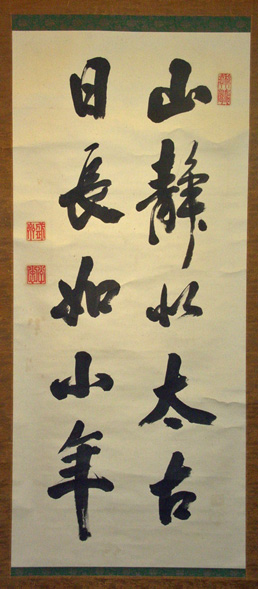 山静似太古
日長如小年